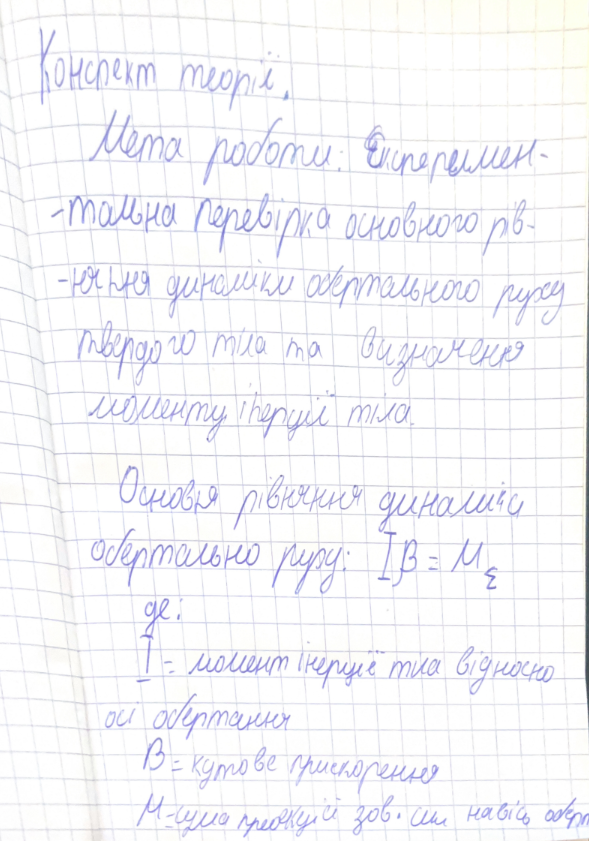 Конспект теорії.
Мета роботи: Експеримен-
-тальна перевірка основного рів-
-няння динаміки обертального руху
твердого тіла та визначення
моменту інерції тіла.
Основне рівняння динаміки
обертально руху: Iβ = M_Σ
де:
I = момент інерції тіла відносно
осі обертання
β = кутове прискорення
M = сума проекцій зов. сил на вісь оберт